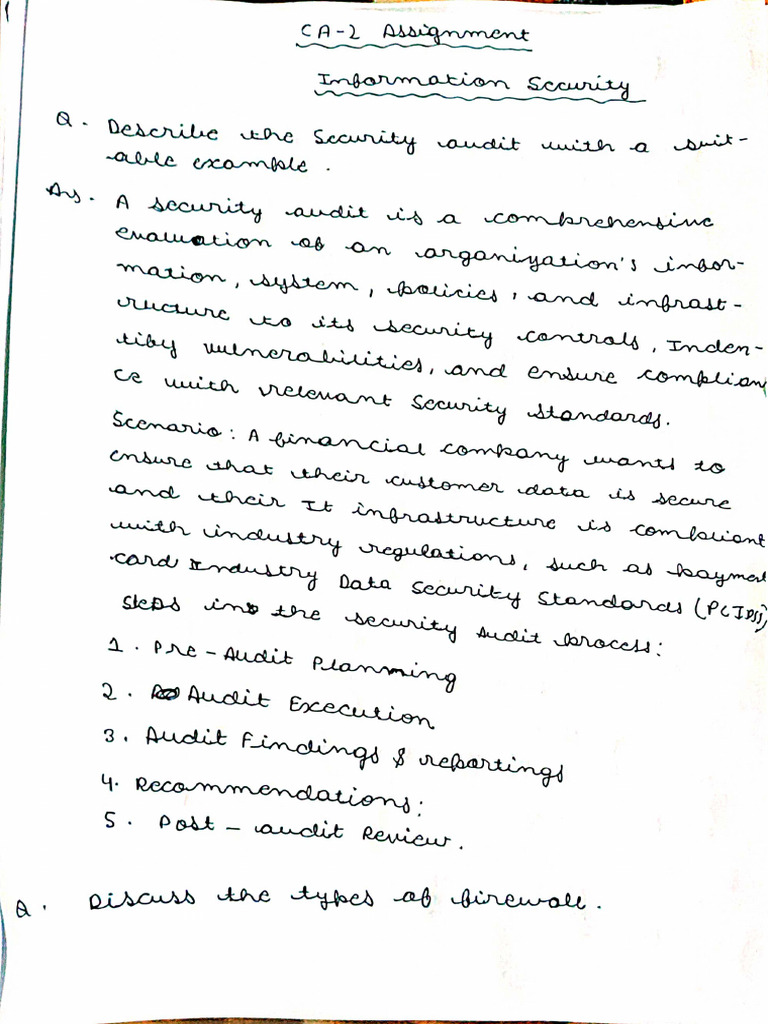 CA-2 Assignment
Information Security
Q. Describe the Security audit with a suit-
able example.
Ans. A security audit is a comprehensive
evaluation of an organization's infor-
mation, system, policies, and infrast-
ructure to its security controls, Inden-
tify vulnerabilities, and ensure complian
ce with relevant Security Standards.
Scenario: A financial company wants to
ensure that their customer data is secure
and their It infrastructure is compliant
with industry regulations, such as payment
card Industry Data Security Standards (PCIDSS)
steps in the security Audit process:
1. Pre-Audit Planning
2. Audit Execution
3. Audit Findings & reportings
4. Recommendations:
5. Post-audit Review.
Q. Discuss the types of firewall.